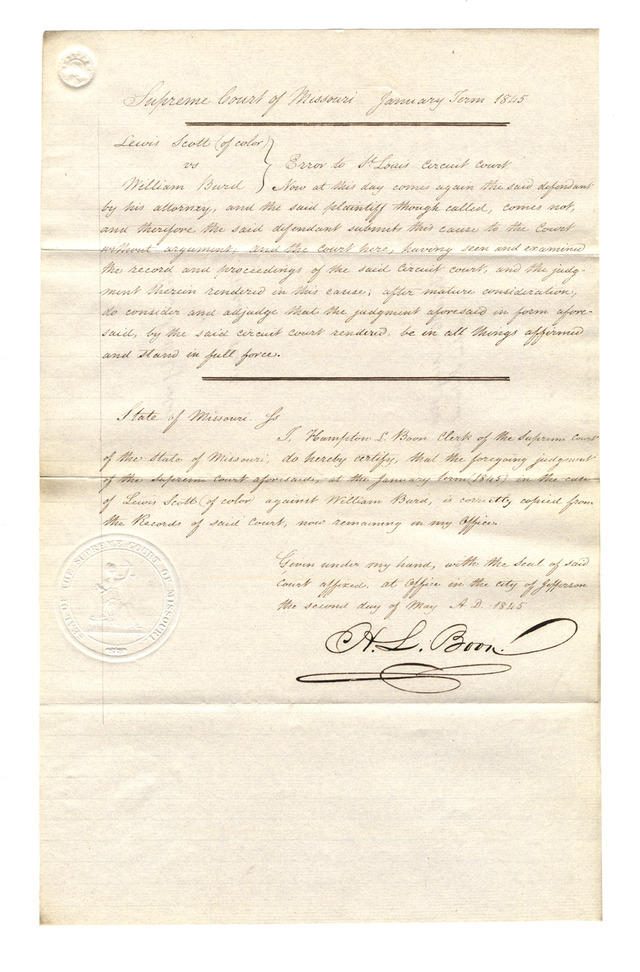 Supreme Court of Missouri January Term 1845
Lewis Scott (of color)
vs
Error to St Louis Circuit Court
William Burd
Now at this day comes again the said defendant
by his attorney, and the said plaintiff though called, comes not,
and therefore the said defendant submits this cause to the Court
without argument; and the court here, having seen and examined
the record and proceedings of the said Circuit court, and the judg-
ment therein rendered in this cause, after mature consideration,
do consider and adjudge that the judgment aforesaid in form afore-
said, by the said circuit court rendered, be in all things affirmed
and stand in full force.
State of Missouri Ss
I, Hampton L. Boon Clerk of the Supreme Court
of the State of Missouri, do hereby certify, that the foregoing judgment
of the Supreme Court aforesaid, at the January term (1845) in the case
of Lewis Scott (of color) against William Burd, is correctly copied from
the Records of said Court, now remaining in my Office.
Given under my hand, with the Seal of said
Court affixed, at Office in the city of Jefferson
the second day of May A.D. 1845
H. L. Boon.
SEAL OF THE SUPREME COURT OF MISSOURI